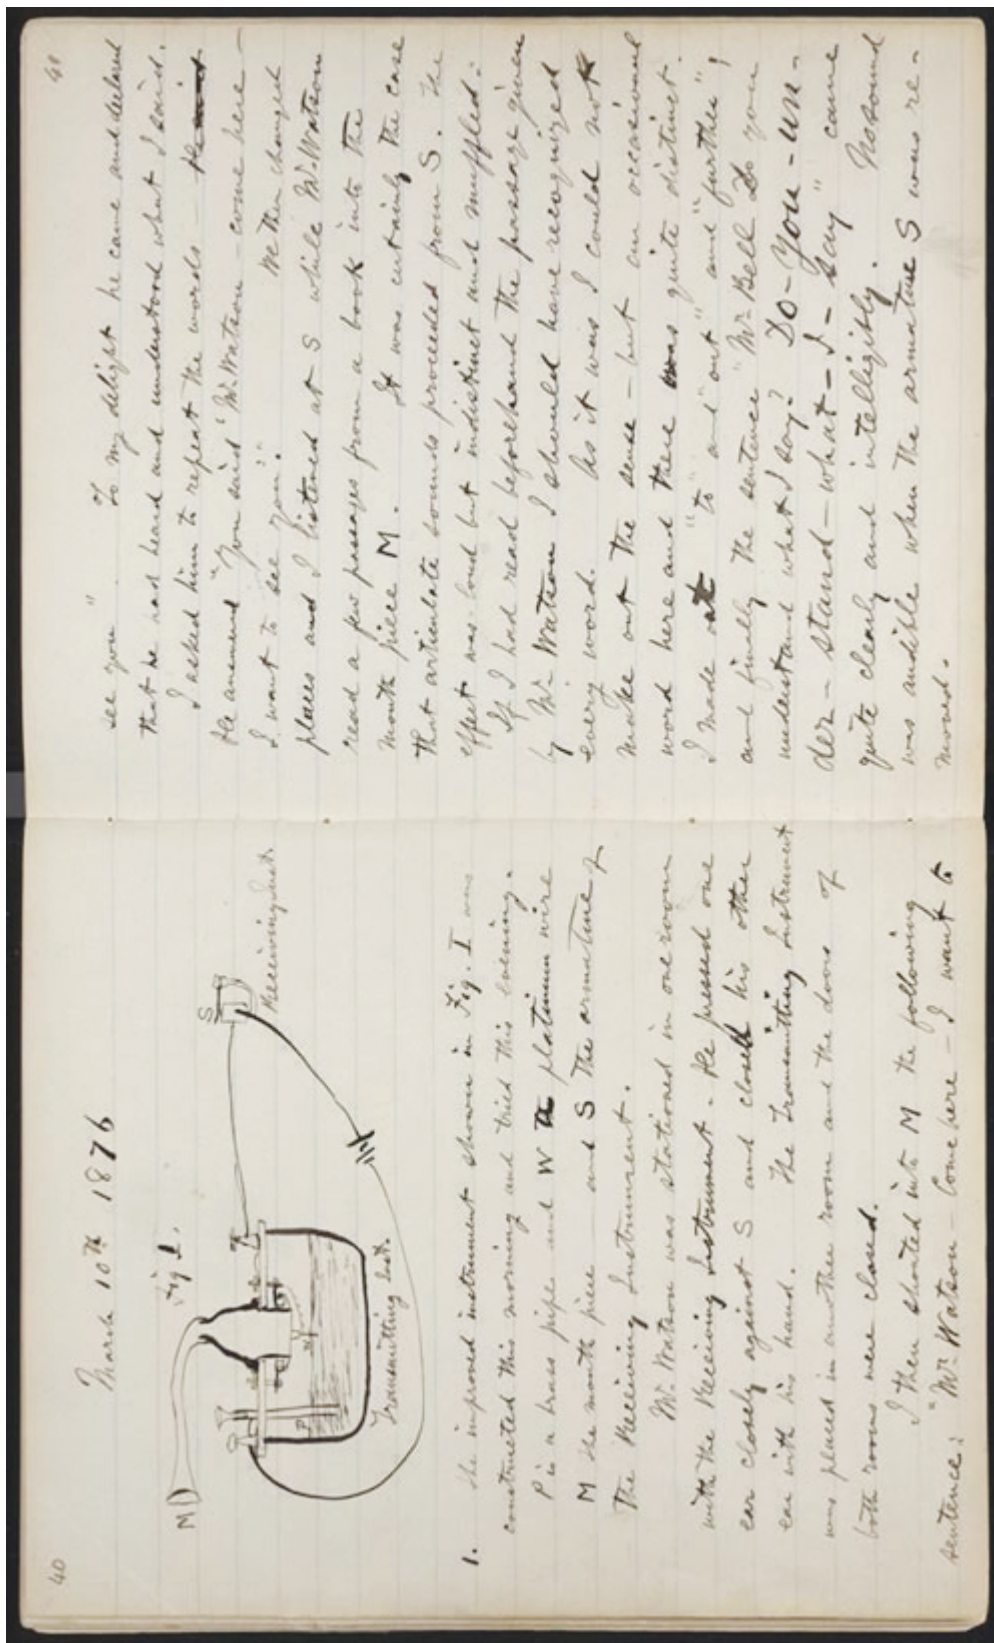 40
March 10th 1876
Fig 1.
M
S
Receiving Inst.
P
W
Transmitting Inst.
1. The improved instrument shown in Fig. I was
constructed this morning and tried this evening.
P is a brass pipe and W the platinum wire
M the mouth piece and S the armature of
the Receiving Instrument.
Mr. Watson was stationed in one room
with the Receiving Instrument. He pressed one
ear closely against S and closed his other
ear with his hand. The Transmitting Instrument
was placed in another room and the doors of
both rooms were closed.
I then shouted into M the following
sentence: "Mr. Watson - Come here - I want to
41
see you". To my delight he came and declared
that he had heard and understood what I said.
I asked him to repeat the words -
He answered "You said 'Mr. Watson - come here -
I want to see you'." We then changed
places and I listened at S while Mr. Watson
read a few passages from a book into the
mouth piece M. It was certainly the case
that articulate sounds proceeded from S. The
effect was loud but indistinct and muffled.
If I had read beforehand the passage given
by Mr. Watson I should have recognized
every word. As it was I could not
make out the sense - but an occasional
word here and there was quite distinct.
I made out "to" and "out" and "further";
and finally the sentence "Mr. Bell Do you
understand what I say? DO-YOU-UN-
der-stand-what-I-say" came
quite clearly and intelligibly. No sound
was audible when the armature S was re-
moved.